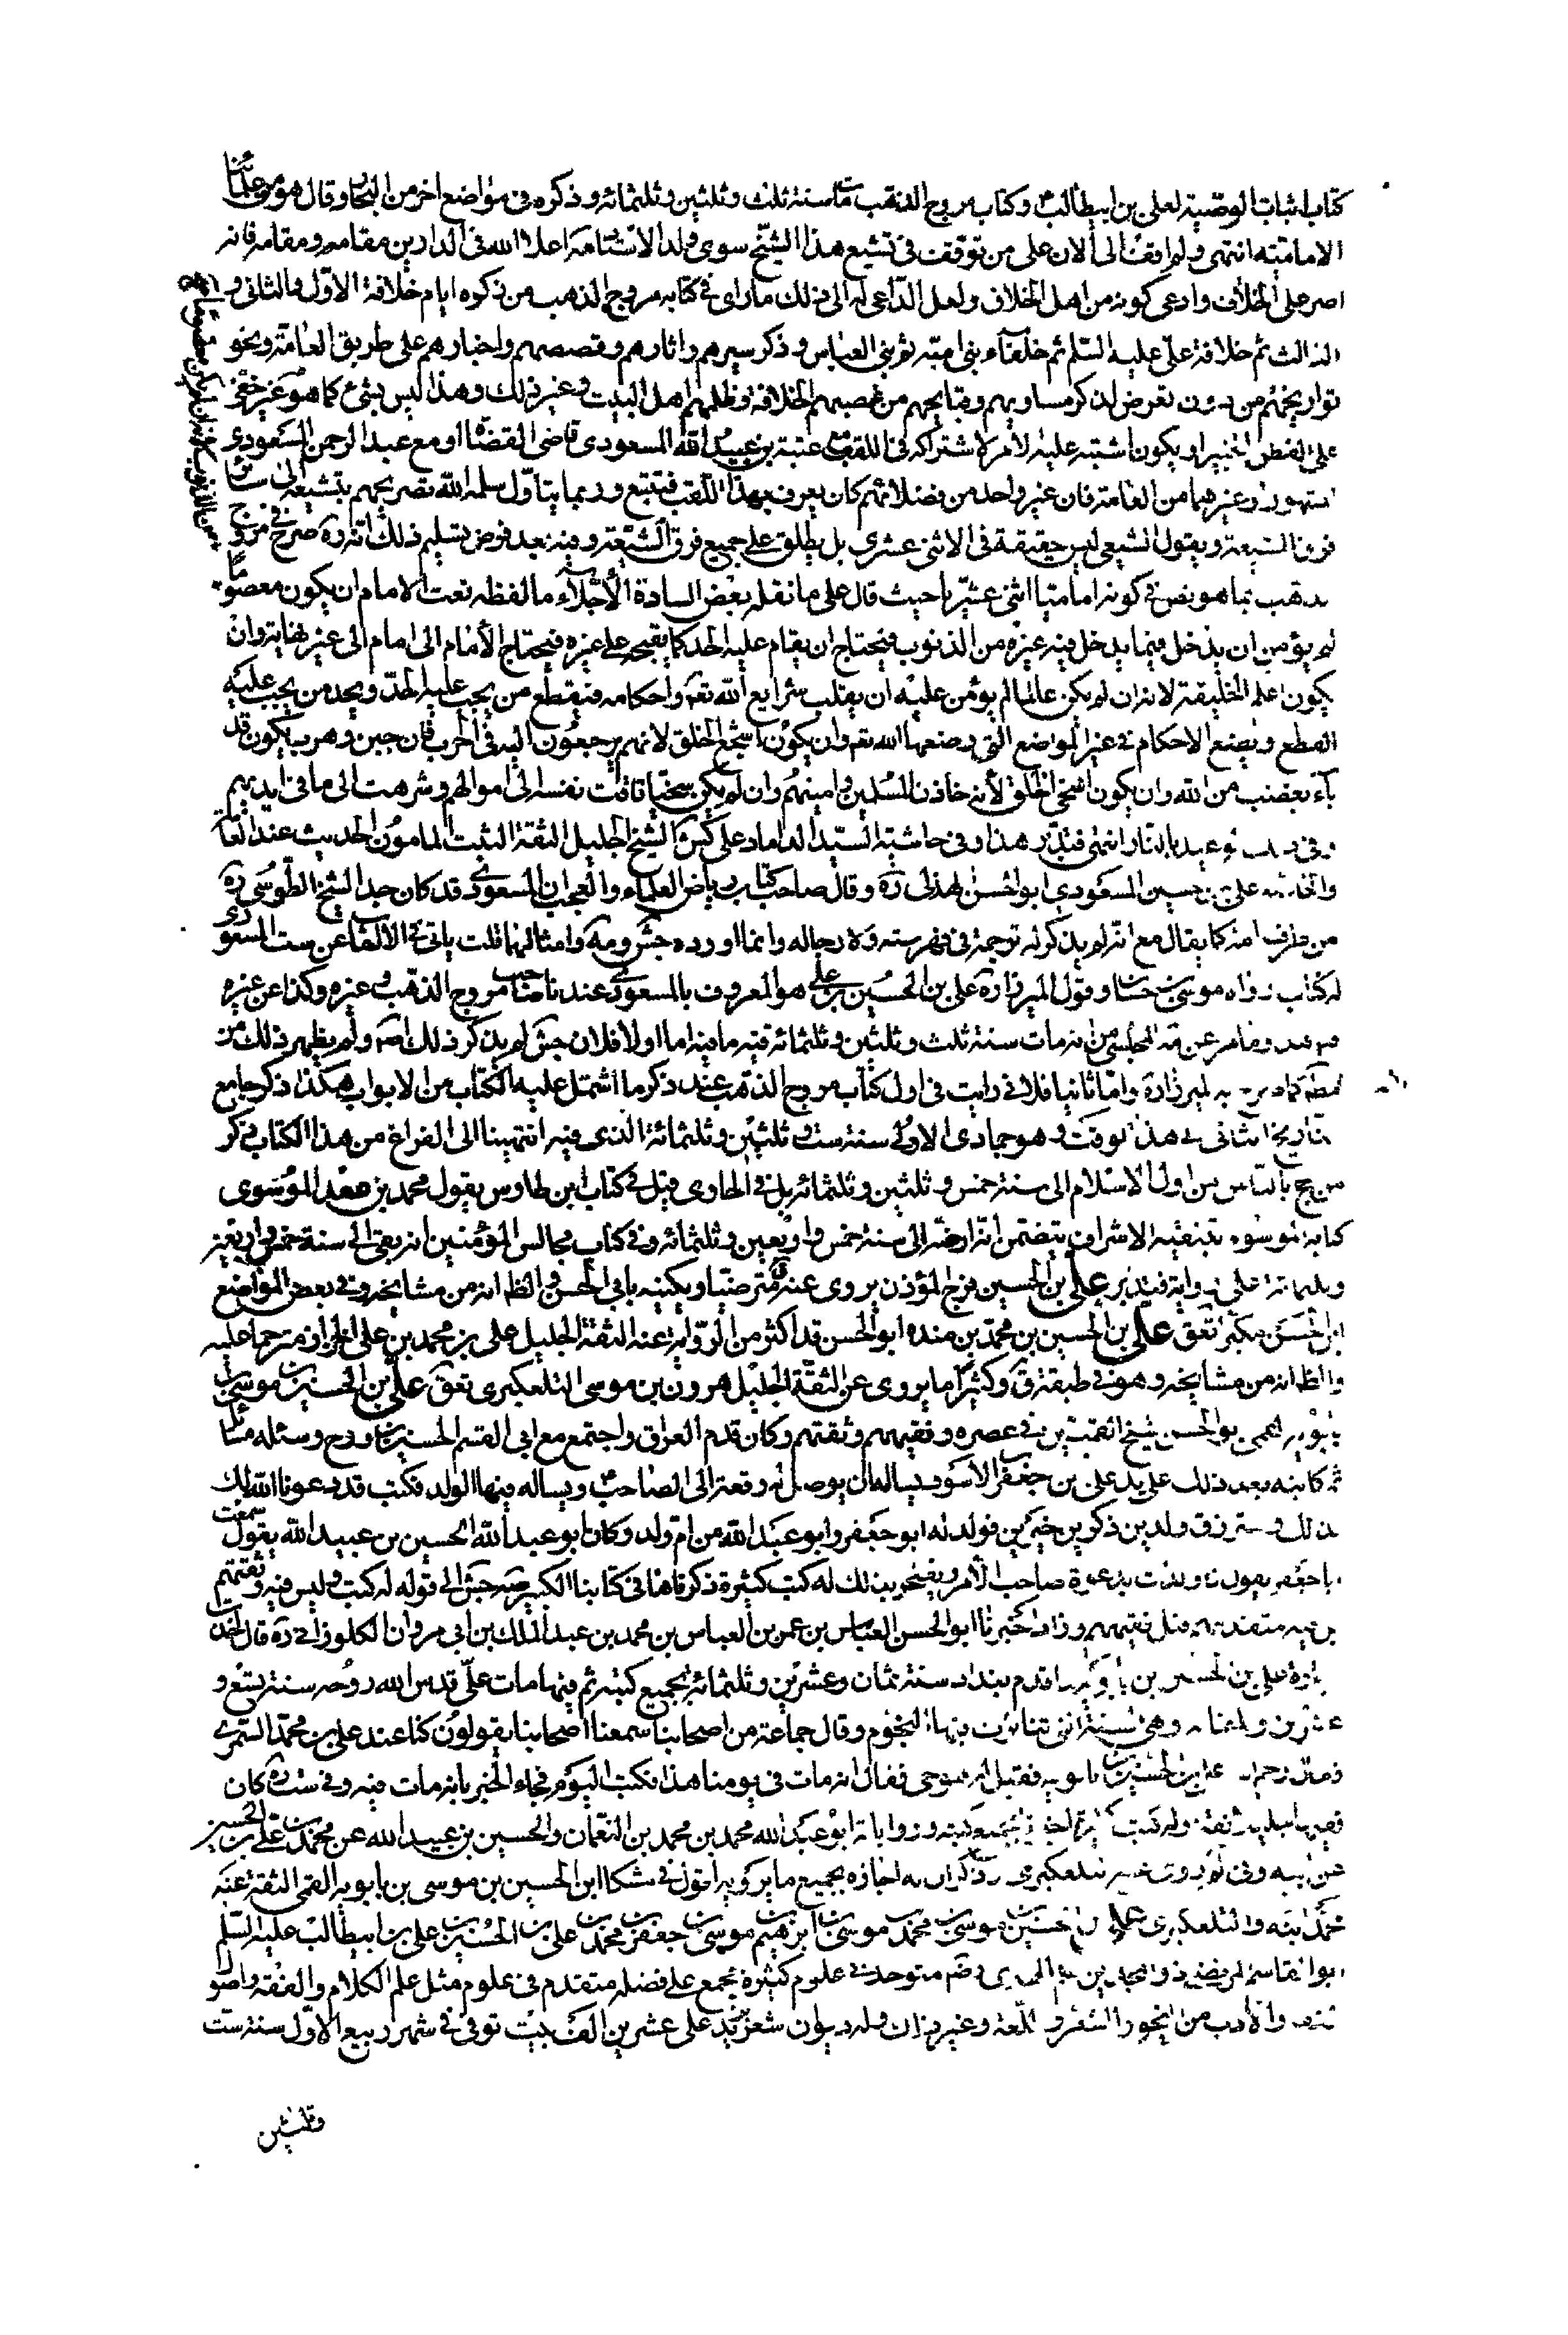 كتاب اثبات الوصية لعلى بن ابيطالب ع وكتاب مروج الذهب مات سنة ثلث وثلثين وثلثمائه وذكره فى مواضع اخر من البحار وقال هو من علمائنا
الاماميّة انتهى ولم اقف الى الان على من توقف فى تشيع هذا الشيخ سوى ولد الاستاد العلامة اعلا الله فى الدارين مقامه ومقامه فانه
اصر على الخلاف وادعى كونه من اهل الخلاف ولعل الداعى له الى ذلك ماراى فى كتابه مروج الذهب من ذكره ايام خلافة الاول والثانى و
الثالث ثم خلافة على عليه السّلم ثم خلفآء بنى اميّه ثم بنى العباس وذكر سيرهم واثارهم وقصصهم واخبارهم على طريق العامّة ونحو
تواريخهم من دون تعرض لذكر مساويهم وقبايحهم من غصبهم الخلافة وظلمهم اهل البيت وغير ذلك وهذا ليس بشئ كما هو غير خفى
على الفطن الخبير او يكون اشتبه عليه الامر لاشتراكه فى اللقب مع عتبة بن عبيد الله المسعودى قاضى القضاة او مع عبد الرحمن المسعودى
المشهور او غيرهما من العامة فان غير واحد من فضلائهم كان يعرف بهذا اللقب فتتبع وربما يتأول سلمه الله تصريحهم بتشيعه الى سائر
فرق الشيعة ويقول الشيعى ليس حقيقة فى الاثنى عشرى بل يطلق على جميع فرق الشيعة وفيه بعد فرض تسليم ذلك انه ره صرح فى مروج
الذهب بما هو نص فى كونه اماميا اثنى عشريا حيث قال على ما نقله بعض السادة الأجلّاء ما لفظه نعت الامام ان يكون معصوما
لم يؤمن ان يدخل فيما يدخل فيه غيره من الذنوب فيحتاج ان يقام عليه الحد كما يقيمه على غيره فيحتاج الأمام الى امام الى غير نهاية وان
يكون اعلم الخليقة لانه ان لم يكن عالما لم يؤمن عليه ان يقلب شرايع الله تعه واحكامه فيقطع من يجب عليه الحدّ ويحد من يجب عليه
القطع ويضع الاحكام فى غير المواضع التى وضعها الله تعه وان يكون اشجع الخلق لانهم يرجعون اليه فى الحرب فان جبن وهرب يكون قد
باء بغضب من الله وان يكون اسخى الخلق لأنه خازن المسلمين وامينهم وان لم يكن سخيّا تاقت نفسه الى اموالهم وشرهت الى ما فى ايديهم
وفى ذلك الوعيد بالنار انتهى فتدبّر هذا وفى حاشية السيّد الداماد على كش الشيخ الجليل الثقة الثبت المامون الحديث عند العامّة
والخاصّة على بن حسين المسعودى ابو الحسن الهذلى ره وقال صاحب كتاب رياض العلماء والعجب ان المسعودى قد كان جد الشيخ الطّوسى ره
من طرف امه كما يقال مع انه لم يذكر له ترجمة فى فهرسته ولا رجاله وانما اورده جش ومه وامثالهما قلت ياتى فى الالقاب عن ست المسعودى
له كتاب رواه موسى بن حسان وقول الميرزا ره على بن الحسين بن على هو المعروف بالمسعودى عند نا صاحب مروج الذهب وغيره وكذا عن غيره
ومامر عن المجلسى من انه مات سنة ثلث وثلثين وثلثمائة فيه مافيه اما اولا فلان جش لم يذكر ذلك اصلا ولم يظهر ذلك من
الميرزا ره وامّا ثانيا فلانى رايت فى اول كتاب مروج الذهب عند ذكر ما اشتمل عليه الكتاب من الابواب هكذا ذكر جامع
التاريخ الثانى الى هذا الوقت وهو جمادى الاولى سنة ست وثلثين وثلثمائة الذى فيه انتهينا الى الفراغ من هذا الكتاب ذكر
من حج بالناس من اول الاسلام الى سنة خمس وثلثين وثلثمائه بل فى الحاوى قيل فى كتاب ابن طاوس يقول محمد بن معد الموسوى
كتابه الموسوم بتنبيه الاشراف يتضمن انه ارخه الى سنة خمس واربعين وثلثمائه وفى كتاب مجالس المؤمنين انه بقى الى سنة خمس واربعين
وثلثمائة على رواية فتدبر على بن الحسين بن فرج المؤذن يروى عنه ق مترضيا ويكنيه بابى الحسن والظ انه من مشايخه وفى بعض المواضع
ابى الحسين مكبرا تعق على بن الحسين بن محمد بن منده ابو الحسن قد اكثر من الرّواية عنه الثقة الجليل على بن محمد بن على الخزاز مترحما عليه
والظ انه من مشايخه وهو فى طبقة ق وكثيرا ما يروى عن الثقة الجليل هرون بن موسى التلعكبرى تعق على بن الحسين بن موسى بن
بابويه القمى ابو الحسن شيخ القميين فى عصره وفقيههم وثقتهم وكان قدم العراق واجتمع مع ابى القسم الحسين بن روح وسئله مسائل
ثم كاتبه بعد ذلك على يد على بن جعفر الاسود يساله ان يوصل له رقعة الى الصاحب ع ويساله فيها الولد فكتب قد دعونا الله لك
بذلك وسترزق ولدين ذكرين خيّرين فولد له ابو جعفر وابو عبد الله من ام ولد وكان ابو عبد الله الحسين بن عبيد الله يقول سمعت
ابا جعفر يقول انا ولدت بدعوة صاحب الأمر ويفتخر بذلك له كتب كثيرة ذكرناها فى كتابنا الكبير صه جش الى قوله له كتب وليس فيه وثقتهم
بن فيه متقدمهم قبل فقيههم وزاد اخبرنا ابو الحسن العباس بن عمر بن العباس بن محمد بن عبد الملك بن ابى مروان الكلوذانى ره قال اخذت
اجازة على بن الحسين بن بابويه لما قدم بغداد سنة ثمان وعشرين وثلثمائة بجميع كتبه ثم فيها مات علىّ قدس الله روحه سنة تسع و
عشرين وثلثمائه وهى السنة التى تناثرت فيها النجوم وقال جماعة من اصحابنا سمعنا اصحابنا يقولون كنا عند على بن محمد السّمرى
فقال رحم الله على بن الحسين بن بابويه فقيل له هو حى فقال انه مات فى يومنا هذا فكتب اليوم فجاء الخبر بانه مات فيه وفى ست ره كان
فقيها جليلا ثقة وله كتب كثيرة اخبرنا بجميع كتبه ورواياته ابو عبد الله محمد بن محمد بن النعمان والحسين بن عبيد الله عن محمد بن على بن الحسين
عن ابيه وفى لم روى عنه التلعكبرى وذكر ان له اجازه بجميع ما يرويه اقول فى مشكا ابن الحسين بن موسى بن بابويه القمى الثقة عنه
محمّد ابنه والتلعكبرى على بن الحسين بن موسى بن محمد بن موسى بن ابرهيم بن موسى بن جعفر بن محمد بن على بن الحسين بن على بن ابيطالب عليه السّلم
ابو القاسم المرتضى ذو المجدين علم الهدى رضه متوحد فى علوم كثيرة مجمع على فضله متقدم فى علوم مثل علم الكلام والفقه واصول
الفقه والأدب من النحو والشعر واللّغة وغير ذلك وله ديوان شعر يزيد على عشرين الف بيت توفى فى شهر ربيع الاوّل سنة ست
وثلثين